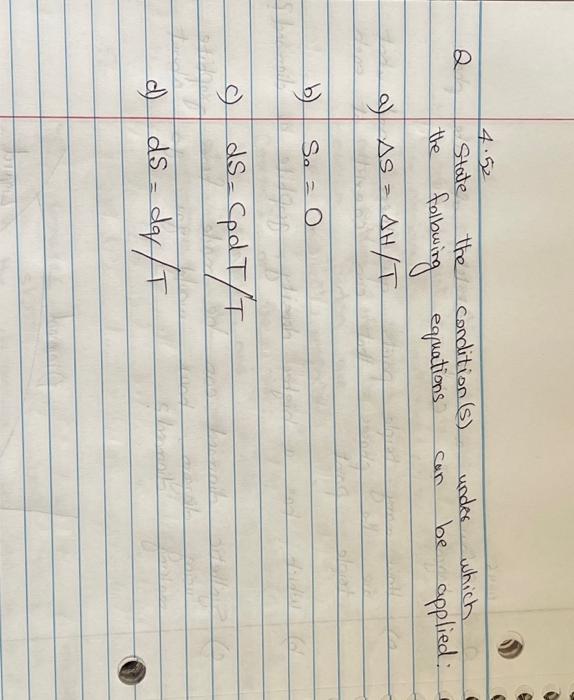 4.52
Q State the condition(s) under which
the following equations can be applied:
a) ΔS = ΔH/T
b) S₀ = 0
c) dS = CpdT/T
d) dS = dq/T